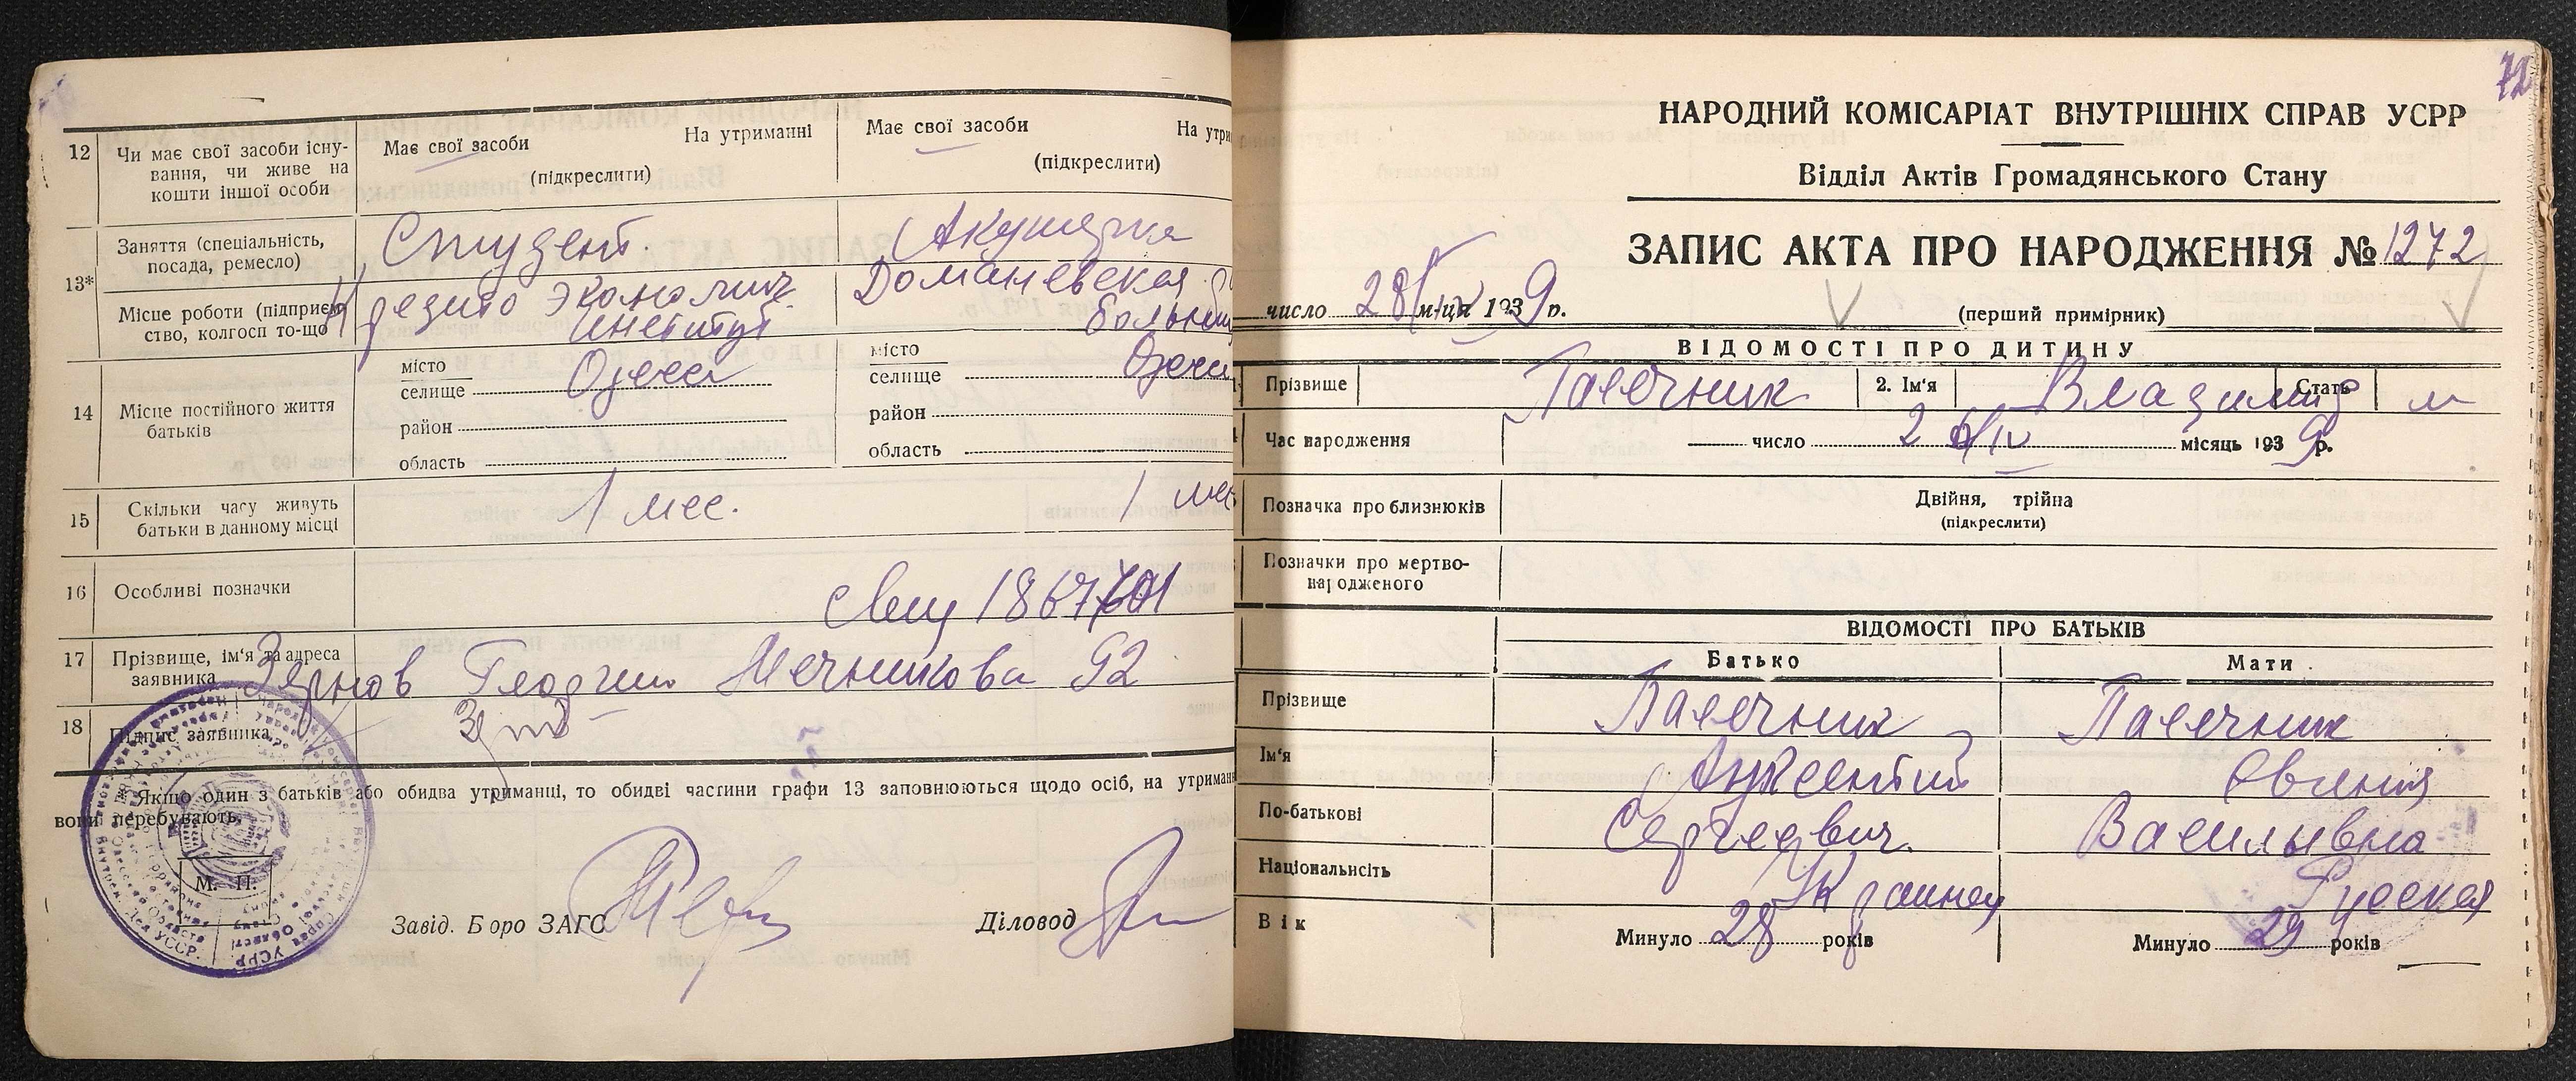 12
Чи має свої засоби існу-
вання, чи живе на
кошти іншої особи
Має свої засоби На утриманні
(підкреслити)
Має свої засоби На утри
(підкреслити)
13*
Заняття (спеціальність,
посада, ремесло)
Студент.
Акушерка
Місце роботи (підприєм
ство, колгосп то-що
экономич
институт
Доманевская
больниц
14
Місце постійного життя
батьків
місто
селище Одесса
район
область
місто
селище Одесса
район
область
15
Скільки часу живуть
батьки в данному місці
1 мес.
1 мес
16
Особливі позначки
17
Прізвище, ім'я та адреса
заявника
Зернов Георгий Мечникова 92
18
Підпис заявника
* Якщо один з батьків або обидва утриманці, то обидві частини графи 13 заповнюються щодо осіб, на утриман
вони перебувають.
М. П.
Завід. Бюро ЗАГС
Діловод
72
НАРОДНИЙ КОМІСАРІАТ ВНУТРІШНІХ СПРАВ УСРР
Відділ Актів Громадянського Стану
ЗАПИС АКТА ПРО НАРОДЖЕННЯ № 1272
число 28/IV м-ця 1939 р.
(перший примірник)
ВІДОМОСТІ ПРО ДИТИНУ
Прізвище Пасечник 2. Ім'я Владимир Стать м
Час народження число 2 6/IV місяць 1939 р.
Позначка про близнюків
Двійня, трійна
(підкреслити)
Позначки про мертво-
народженого
ВІДОМОСТІ ПРО БАТЬКІВ
Батько Мати
Прізвище Пасечник Пасечник
Ім'я Авксентий Евгения
По-батькові Сергеевич. Васильевна
Національність Украинец Русская
Вік Минуло 28 років Минуло 29 років